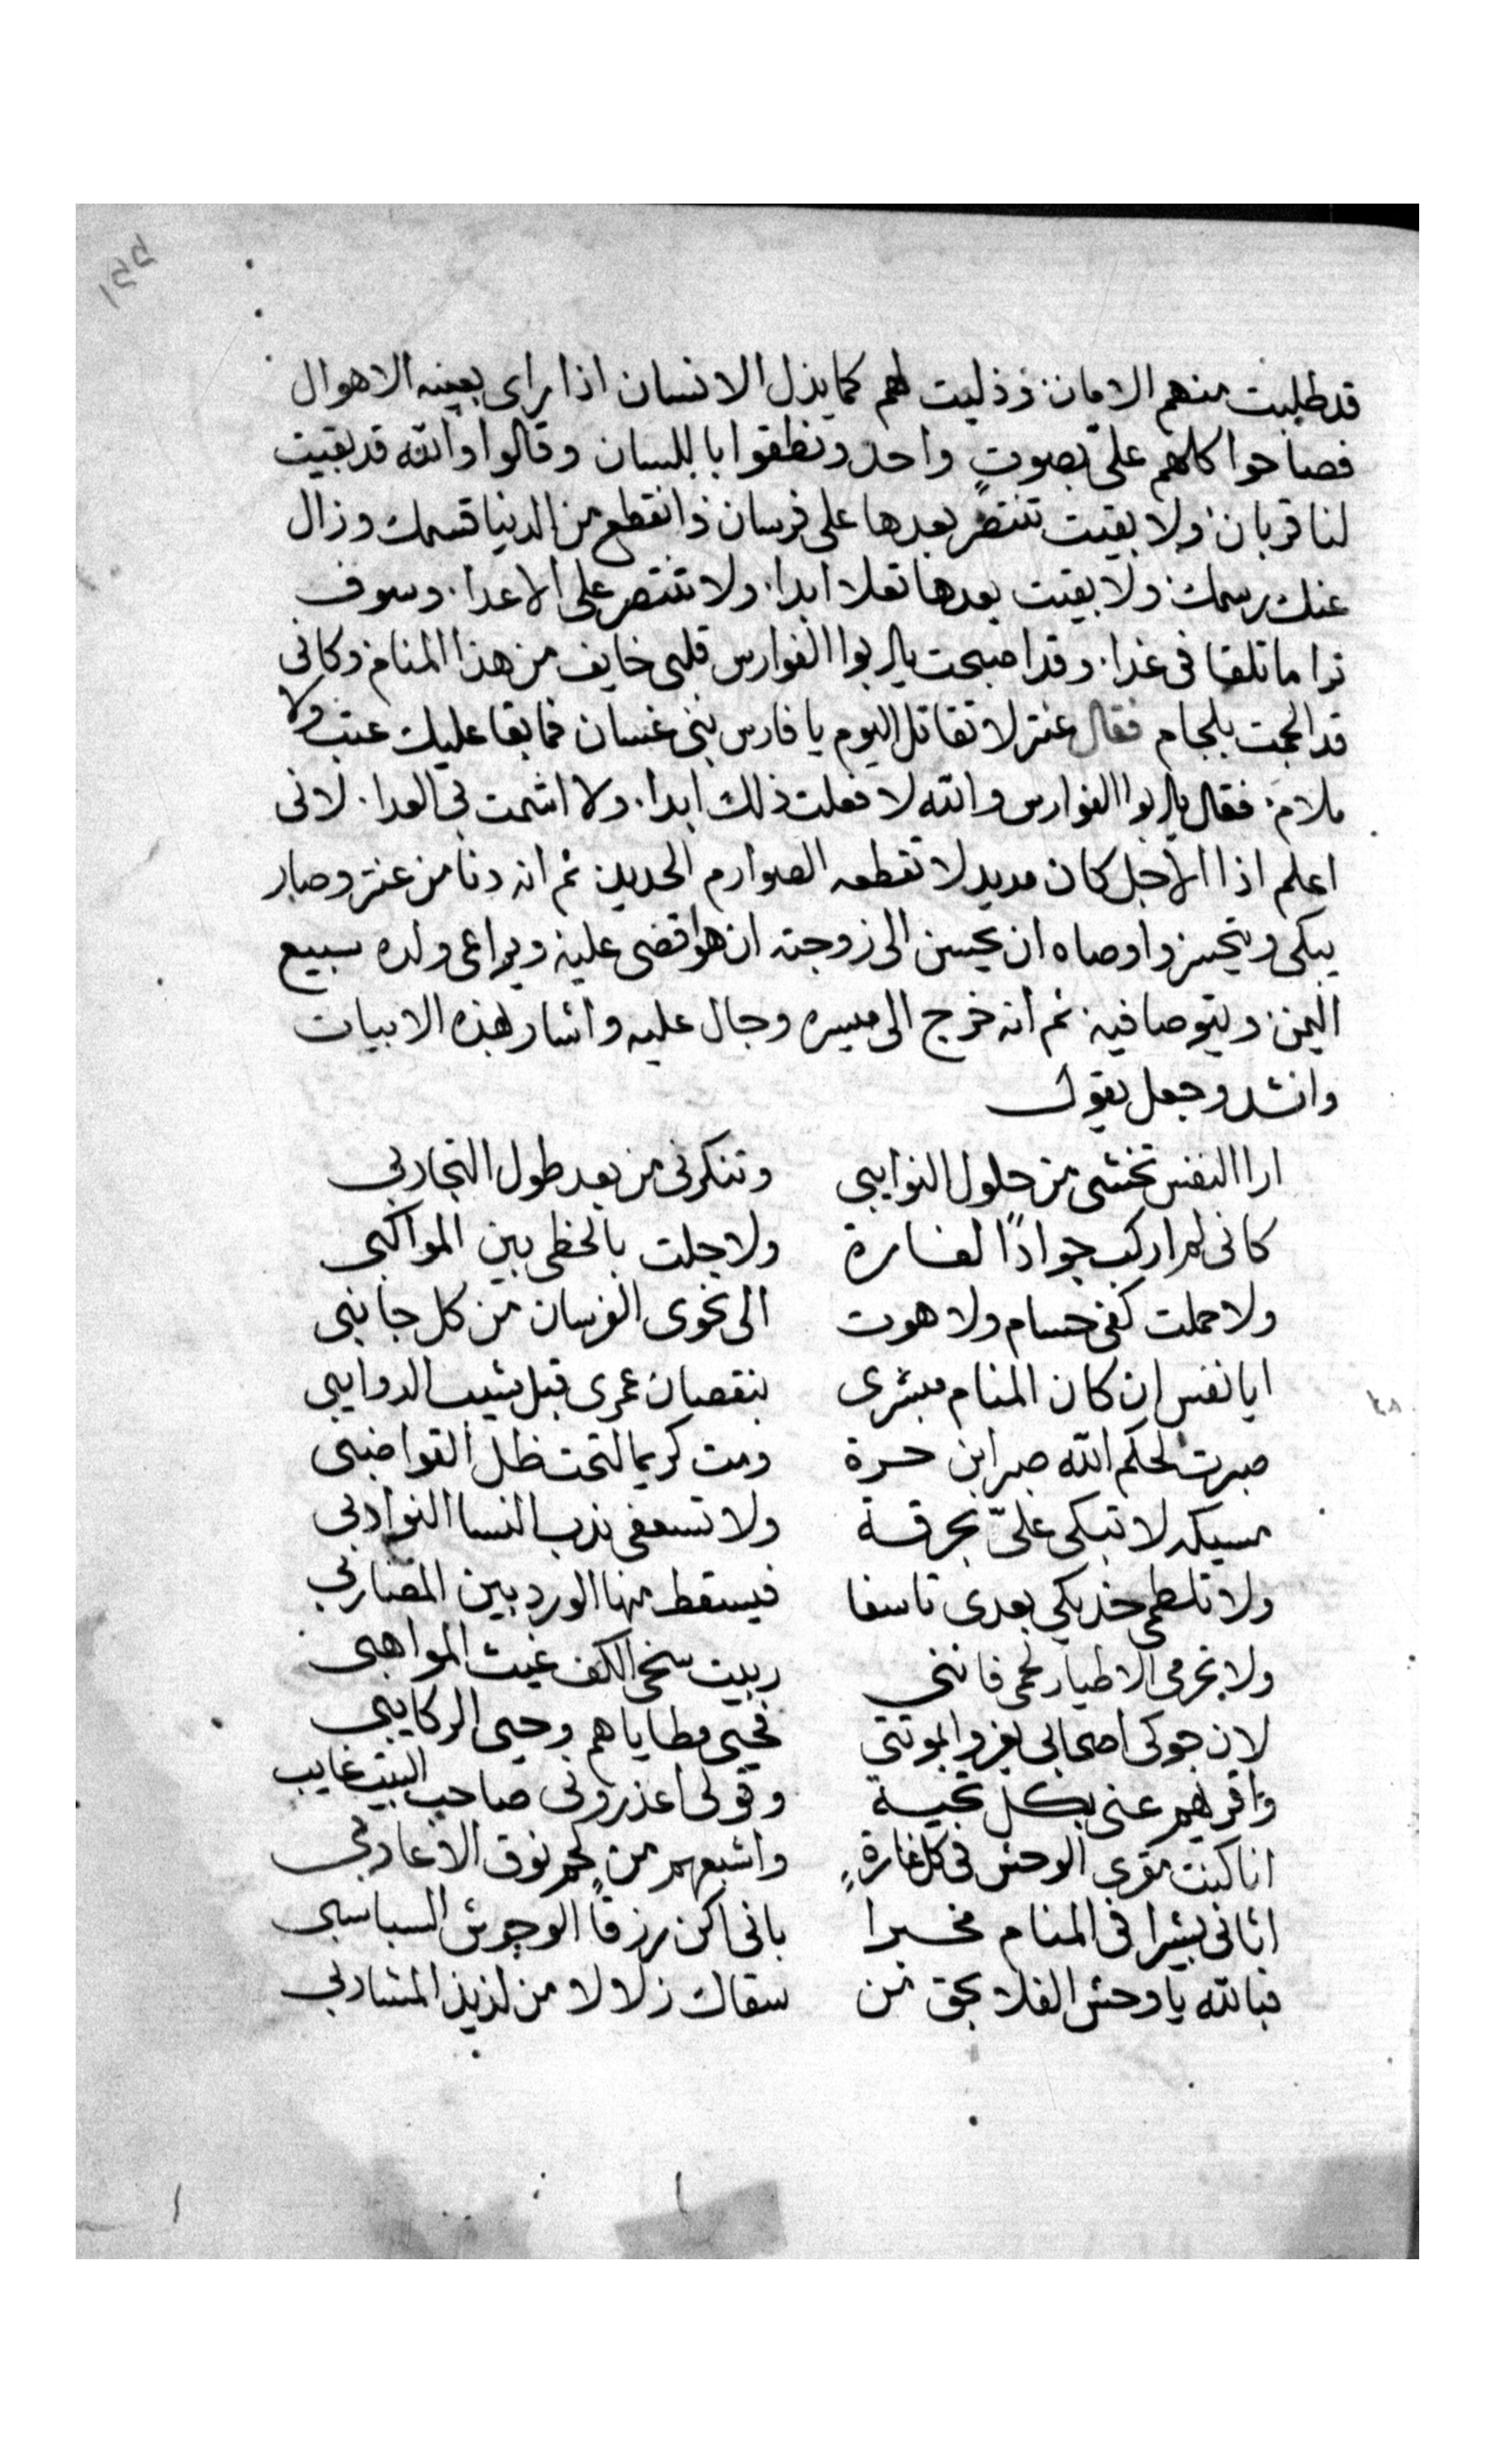 قد طلبت منهم الامان وذليت لهم كما يذل الانسان اذا راى بعينه الاهوال
فصاحوا كلهم علىّ بصوتٍ واحد ونطقوا باللسان وقالوا والله قد بقيت
لنا قربان ولا بقيت تنتصر بعدها على فرسان وانقطع من الدنيا قسمك وزال
عنك رسمك ولا بقيت بعدها تعلا ابدا ولا تنتصر على الاعدا وسوف
ترا ما تلقا فى غدا وقد اصبحت يابوا الفوارس قلبى خايف من هذا المنام وكانى
قد الجمت بلجام فقال عنتر لا تقاتل اليوم يا فارس بنى غسان فما بقا عليك عتب ولا
ملام فقال يابوا الفوارس والله لا فعلت ذلك ابدا ولا اشمت بى العدا لانى
اعلم اذا الاجل كان مديد لا تقطعه الصوارم الحديد ثم انه دنا من عنتر وصار
يبكى ويتحسر واوصاه ان يحسن الى زوجته ان هوا قضى عليه ويراعى ولده سبيع
اليمن ويتوصا فيه ثم انه خرج الى ميسره وجال عليه واشار بهذه الابيات
وانشد وجعل يقول
ارا النفس تخشى من حلول النوايبى وتنكرنى من بعد طول التجاربى
كانى لم اركب جوادًا لغارة ولا جلت بالخطى بين المواكبى
ولا حملت كفى حسام ولا هوت الى نحوى الفرسان من كل جانبى
ايا نفس ان كان المنام مبشرى بنقصان عمرى قبل شيب الدوايبى
صبرت لحكم الله صبر ابن حرة ومت كريما تحت ظل القواضبى
مسيكه لا تبكى علىّ بحرقة ولا تسعفى ندب النسا النوادبى
ولا تلطمى خديكى بعدى تاسفا فيسقط منها الورد بين المضاربى
ولا تحرمى الاطيار لحمى فاننى ربيت سخى الكف غيث المواهبى
لان جوكى اصحابى بموتتى فحيى مطاياهم وحيى الركايبى
واقريهم عنى بكل تحية وقولى اعذرونى صاحب البيت غايب
انا كنت مقرى الوحش فى كل غارةٍ واشبعهم من لحم نوق الاعاربى
اتانى بشيرا فى المنام مخبرا بانى اكن رزقاً الوحوش السباسبى
فبالله يا وحش الفلا بحق من سقاك زلالا من لذيذ المشاربى